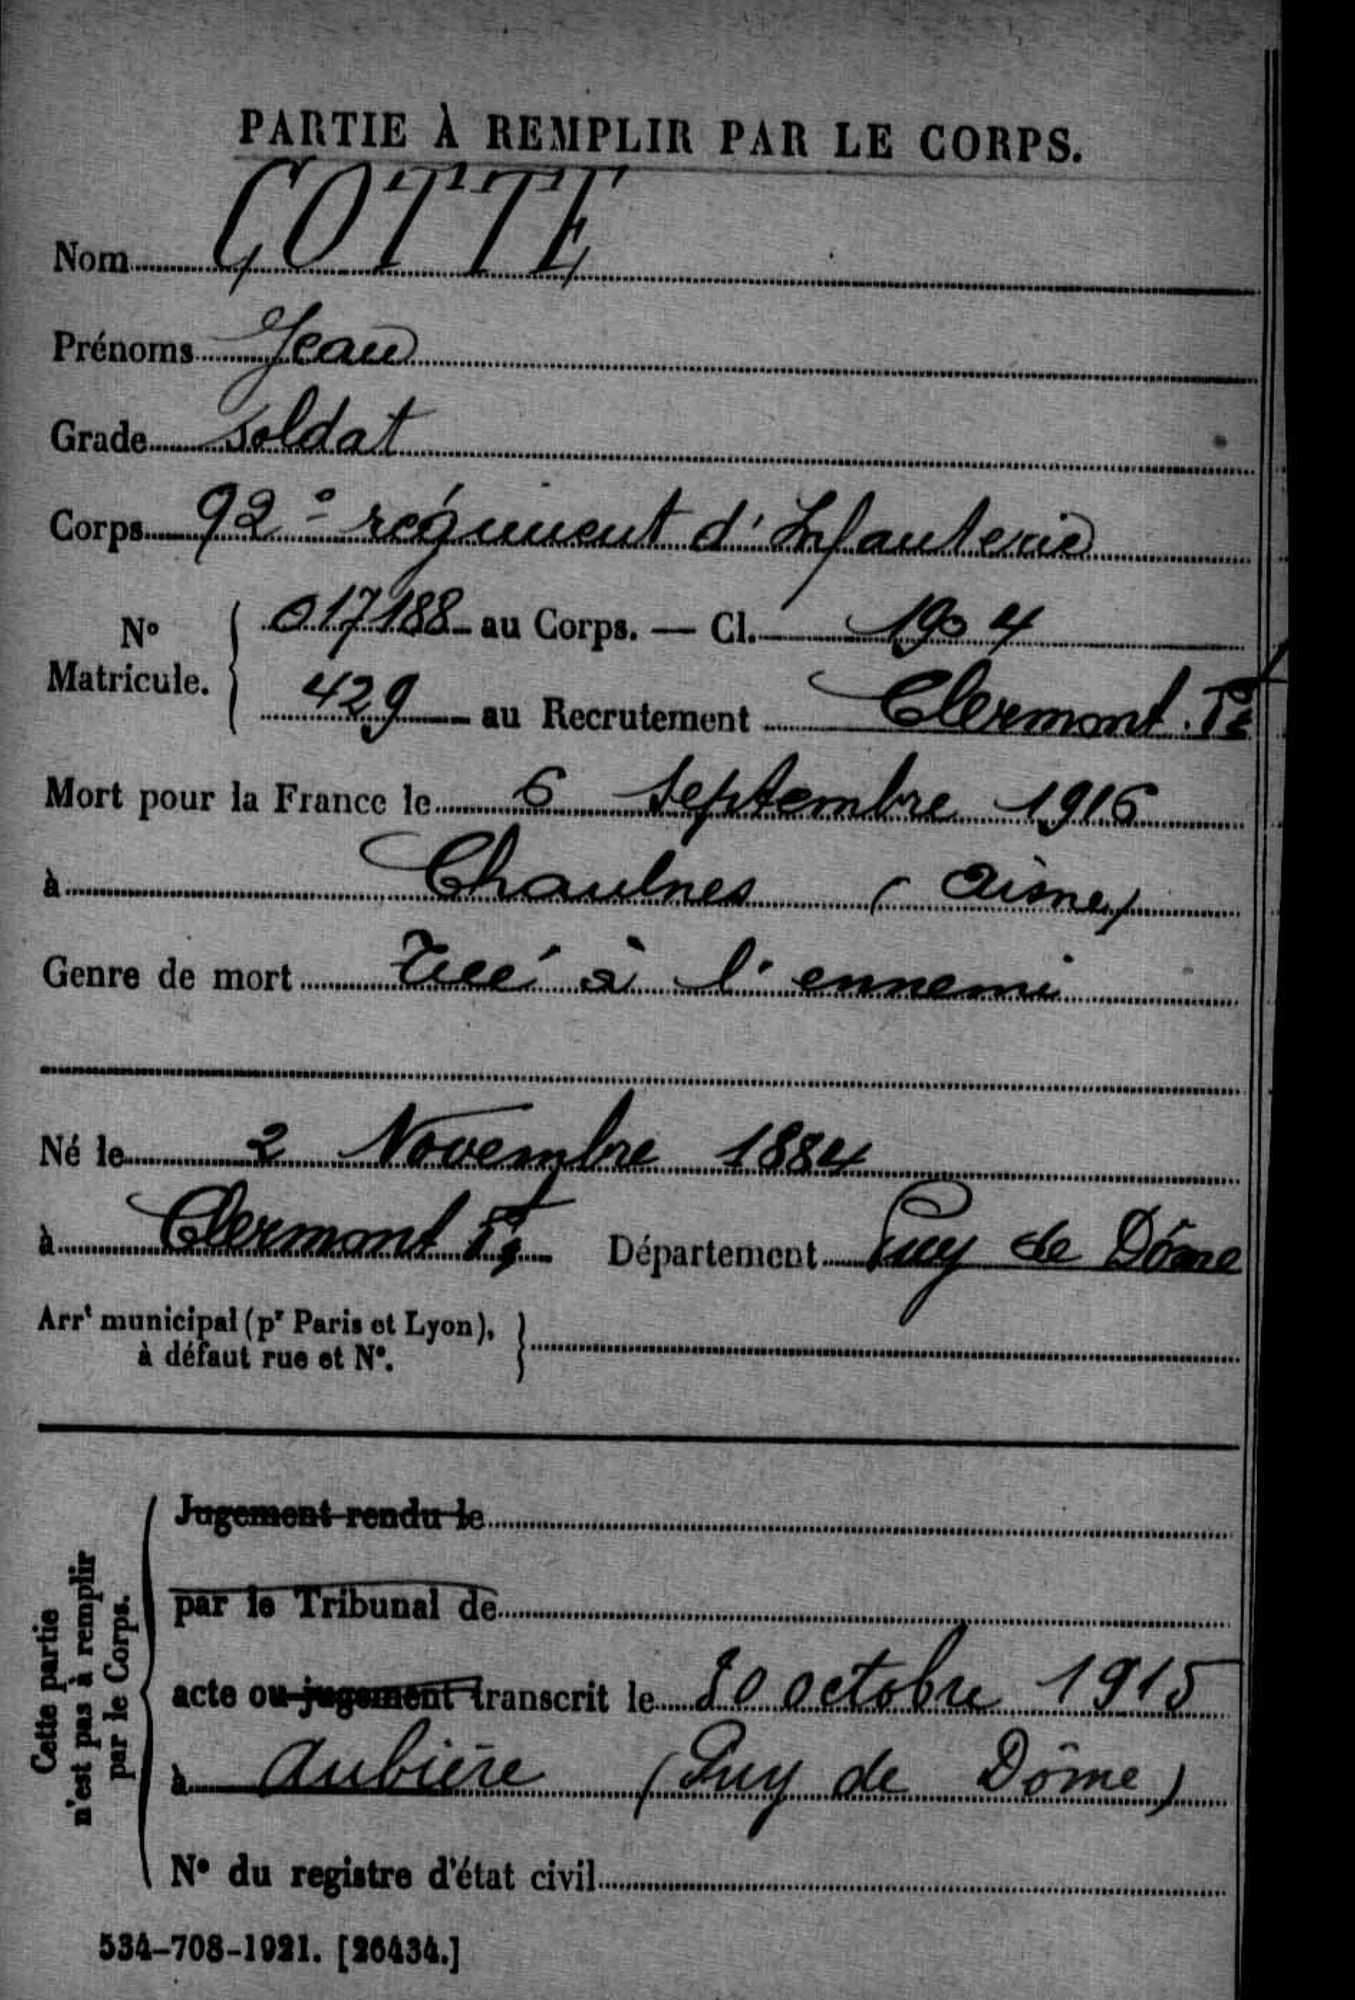 PARTIE À REMPLIR PAR LE CORPS.
Nom COTTE
Prénoms Jean
Grade Soldat
Corps 92e régiment d'Infanterie
N° Matricule. 017188 au Corps. — Cl. 1904
429 au Recrutement Clermont. Fd
Mort pour la France le 6 Septembre 1916
à Chaulnes (Aisne)
Genre de mort Tué à l'ennemi
Né le 2 Novembre 1884
à Clermont Fd Département Puy de Dôme
Arrt municipal (pr Paris et Lyon),
à défaut rue et N°.
Cette partie
n'est pas à remplir
par le Corps.
Jugement rendu le
par le Tribunal de
acte ou jugement transcrit le octobre 1915
à Aubière (Puy de Dôme)
N° du registre d'état civil
534-708-1921. [26434.]